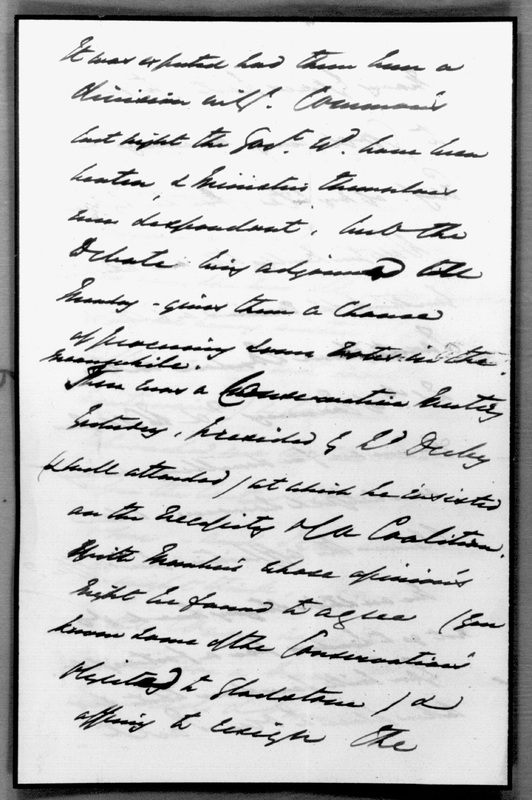 It was expected had there been a
division in ye. Commons
last night the Govt. Wd. have been
beaten, & Ministers themselves
were despondant, but the
Debate being adjourned till
Monday - gives them a chance
of procuring some votes in the
meanwhile.
There was a Conservative Meeting
Yesterday, presided by Ld Derby
(& well attended) at which he insisted
on the necessity of a Coalition
With Members whose opinions
Might be found to agree (You
know some of the Conservatives
Objected to Gladstone) &
offering to resign the